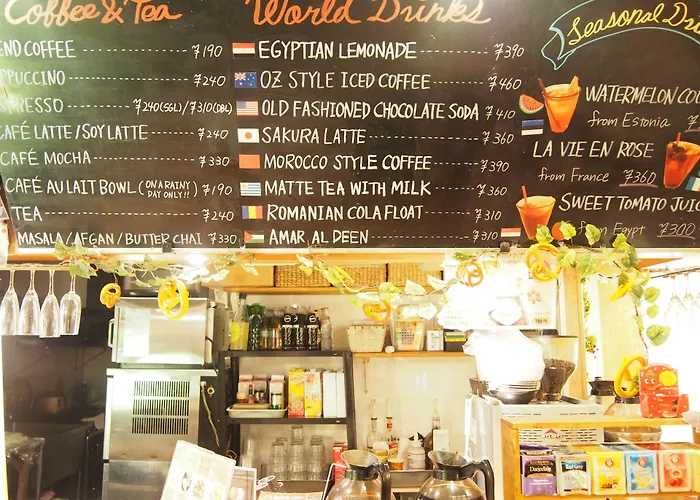 Coffee & Tea
END COFFEE ¥190
PPUCCINO ¥240
SPRESSO ¥240(SGL)/¥310(DBL)
CAFÉ LATTE/SOY LATTE ¥240
CAFÉ MOCHA ¥330
CAFÉ AU LAIT BOWL (ON A RAINY DAY ONLY!!) ¥190
TEA ¥240
MASALA/AFGAN/BUTTER CHAI ¥330
World Drinks
EGYPTIAN LEMONADE ¥390
OZ STYLE ICED COFFEE ¥460
OLD FASHIONED CHOCOLATE SODA ¥410
SAKURA LATTE ¥360
MOROCCO STYLE COFFEE ¥390
MATTE TEA WITH MILK ¥360
ROMANIAN COLA FLOAT ¥310
AMAR AL DEEN ¥310
Seasonal Dr
WATERMELON CO
from Estonia
LA VIE EN ROSE
from France ¥360
SWEET TOMATO JUIC
from Egypt ¥300
Darjeeling
Earl Grey